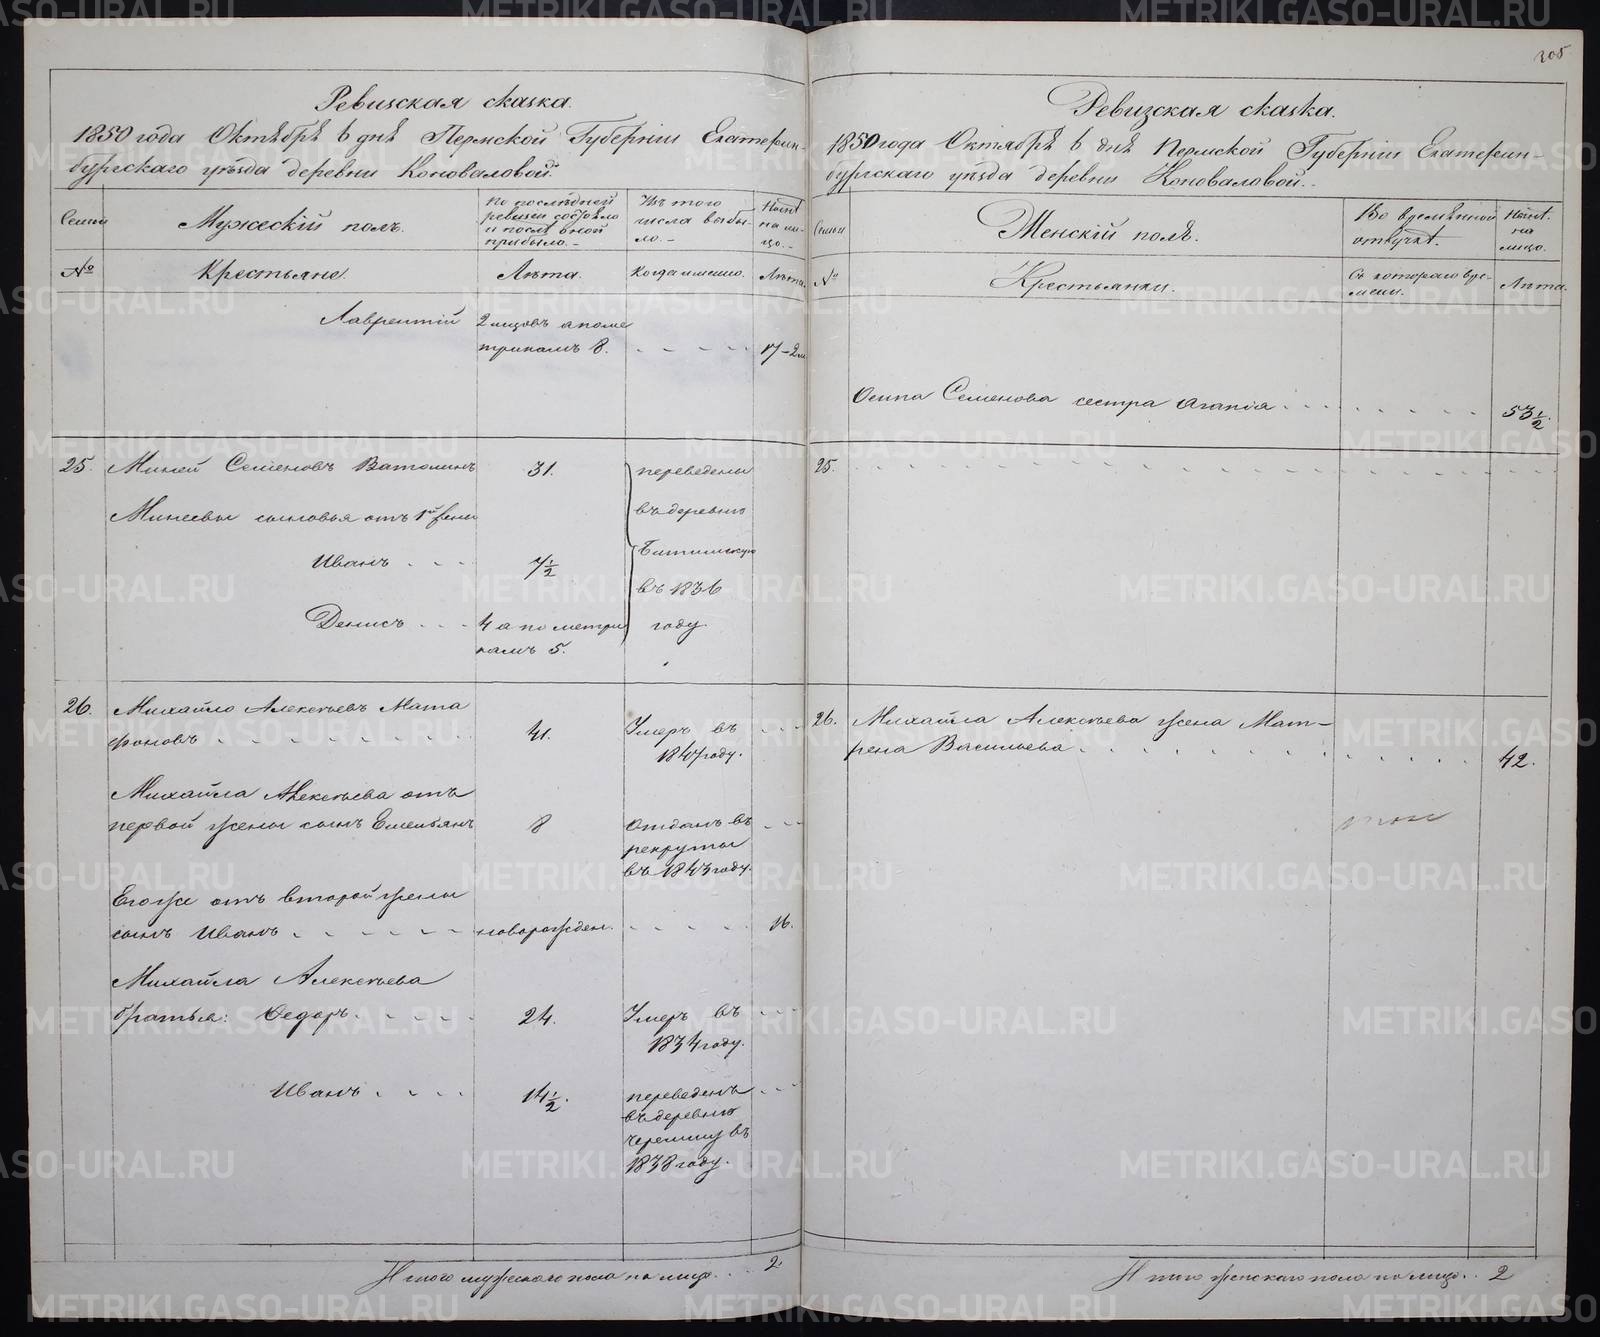 305
Ревизская сказка.
1850 года Октября 6 дня Пермской Губерніи Екатерин-
бургскаго уѣзда деревни Коноваловой.
Семьи
Мужескій полъ.
По послѣдней
ревизіи состояло
и послѣ оной
прибыло.
Изъ того
числа выбы-
ло.
Нынѣ
на ли-
цо.
№
Крестьяне.
Лѣта.
Когда именно.
Лѣта.
Лаврентій
2 мцовъ а поме
трикамъ 8.
17-2м
25.
Миней Семеновъ Ватолинъ
31.
переведены
въ деревню
въ 1836
году.
Минеевы сыновья отъ 1й жены
Иванъ
7 1/2
Денисъ
4 а по метри
камъ 5.
26.
Михайло Алексѣевъ Мата
фоновъ
41.
Умеръ въ
1847 году.
Михайла Алексѣева отъ
первой жены сынъ Емельянъ
8
Отданъ въ
рекруты
въ 1843 году.
Егоже отъ второй жены
сынъ Иванъ
новорожден.
16.
Михайла Алексѣева
братья: Ѳедоръ
24.
Умеръ въ
1834 году.
Иванъ
14 1/2.
переведенъ
въ деревню
въ
1838 году.
Итого мужескаго пола на лицо
2
Ревизская сказка.
1850 года Октября 6 дня Пермской Губерніи Екатерин-
бургскаго уѣзда деревни Коноваловой.
Семьи
Женскій полъ.
Во временной
отлучкѣ.
Нынѣ
на
лицо.
№
Крестьянки.
Съ котораго вре-
мени.
Лѣта.
Осипа Семенова сестра Агапія
53 1/2.
25.
26.
Михайла Алексѣева жена Мат-
рена Васильева
42.
Итого женскаго пола на лицо
2
METRIKI.GASO-URAL.RU